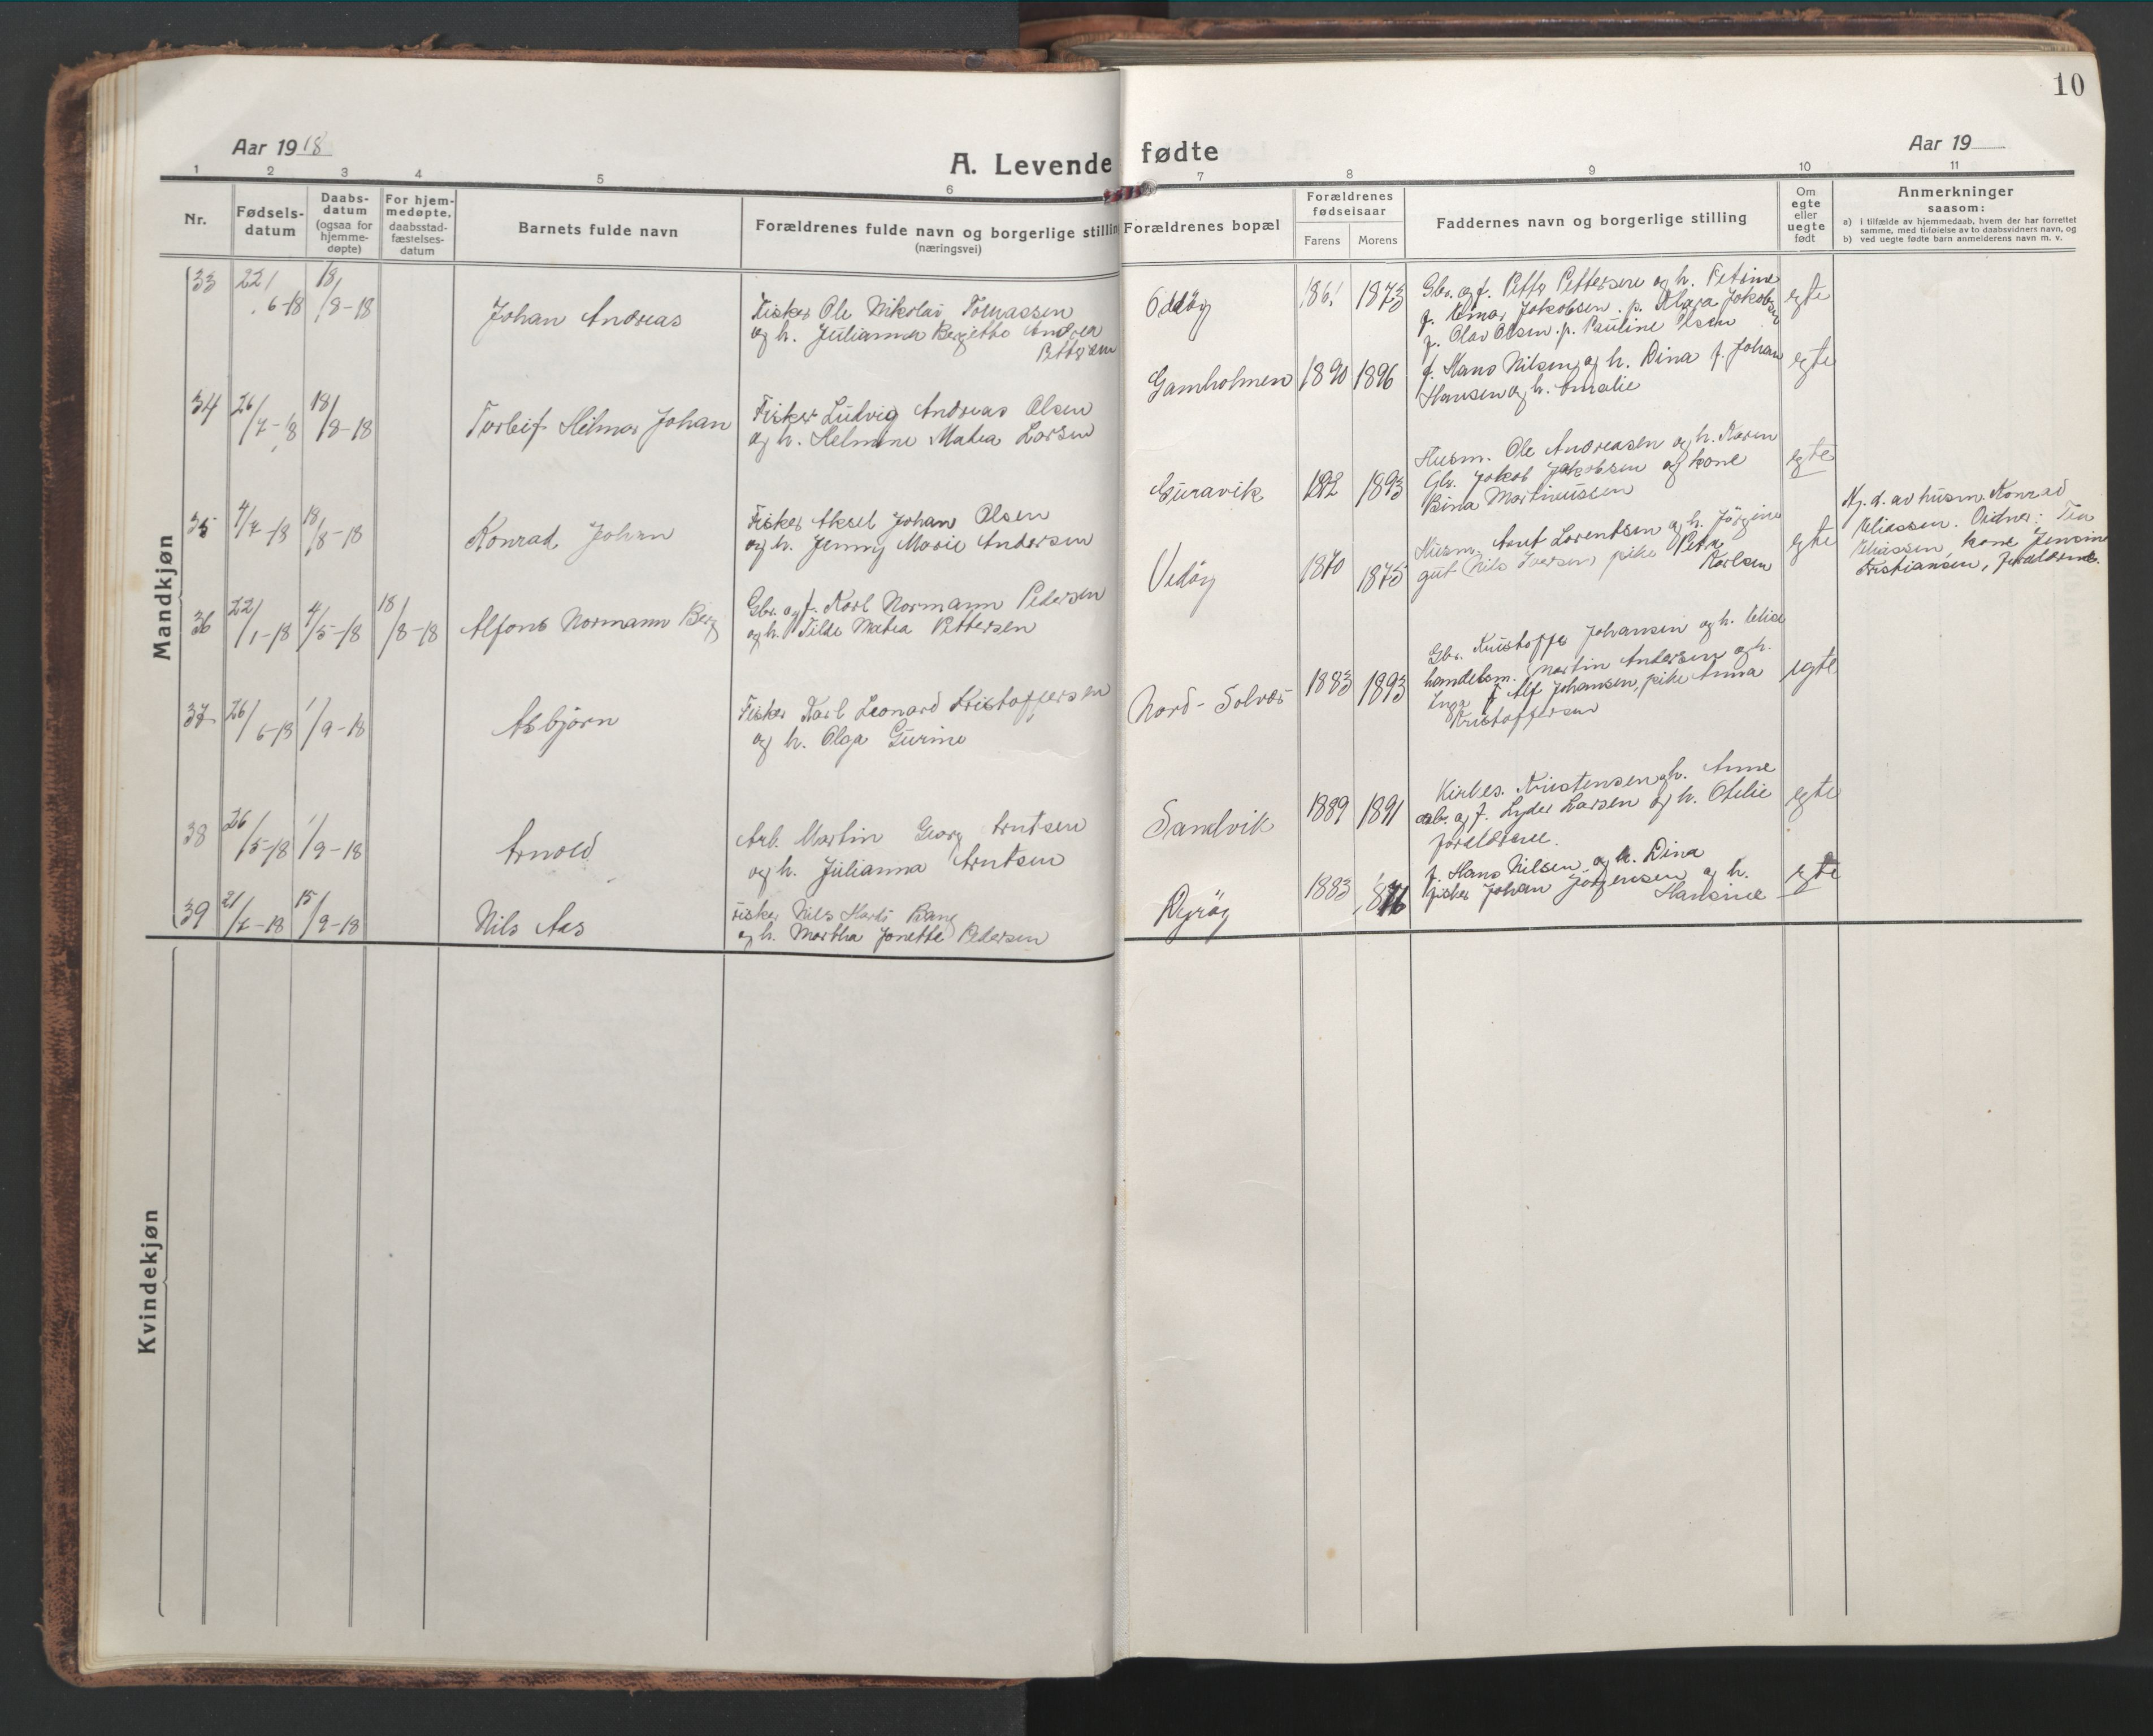 10
Aar 1918
A. Levende fødte
Aar 19
1 2 3 4 5 6 7 8 9 10 11
Nr.
Fødsels-
datum
Daabs-
datum
(ogsaa for
hjemme-
døpte)
For hjem-
medøpte,
daabsstad-
fæstelses-
datum
Barnets fulde navn
Forældrenes fulde navn og borgerlige stillin
(næringsvei)
Forældrenes bopæl
Forældrenes
fødselsaar
Farens Morens
Faddernes navn og borgerlige stilling
Om
egte
eller
uegte
født
Anmerkninger
saasom:
a) i tilfælde av hjemmedaab, hvem der har forrettet
samme, med tilføielse av to daabsvidners navn, og
b) ved uegte fødte barn anmelderens navn m. v.
Mandkjøn
33 22/6-18 18/8-18
Johan Andreas
Fisker Ole Nikolai Tomassen
og h. Julianna Bergethe Andrea
Pettersen
Oddöy
1861 1873
Gbr. og f. Petter Pettersen og h. Petrine
f. Einar Jakobsen. p. Klara Jakobsen
f. Olav Olsen. p. Pauline Olsen
egte
34 26/7-18 18/8-18
Torleif Hilmar Johan
Fisker Ludvig Andreas Olsen
og h. Helmine Matea Larsen
Gamholmen
1890 1896
f. Hans Nilsen og h. Dina f. Johan
Hansen og h. Amalie
egte
35 4/7-18 18/8-18
Konrad Johan
Fisker Aksel Johan Olsen
og h. Jenny Marie Andersen
Guravik
1892 1893
Husm. Ole Andreasen og h. Karen
Gbr. Jakob Jakobsen og kone
Bina Martinussen
egte
36 22/1-18 4/5-18 18/8-18
Alfons Normann Berg
Gbr. og f. Karl Normann Pedersen
og h. Tilda Matea Pettersen
Vedöy
1870 1875
Husm. Arnt Lorentsen og h. Jörgine
gut Nils Iversen, pike Petra
Karlsen
egte
Hj. d. av husm. Konrad
Eliassen. Vidner:
Eliassen, kone Jensine
Kristiansen, forældrene.
37 26/6-18 1/9-18
Asbjörn
Fisker Karl Leonard Kristoffersen
og h. Olga Gurine
Nord-Solvær
1883 1893
Gbr. Kristoffer Johansen og h. Elise
handelsm. Martin Andersen og h.
Inga f. Alf Johansen, pike Anna
Kristoffersen
egte
38 26/5-18 1/9-18
Arnold
Arb. Martin Georg Arntsen
og h. Julianna Arntsen
Sandvik
1889 1891
Kirkes. Kristensen og h. Anne
arb. og f. Lyder Larsen og h. Otelie
forældrene.
egte
39 21/7-18 15/9-18
Nils Aas
Fisker Nils Hardi Bang
og h. Martha Jonette Pedersen
Dyröy
1883 1876
f. Hans Nilsen og h. Dina
fisker Johan Jörgensen og h.
Hansine
egte
Kvindekjøn